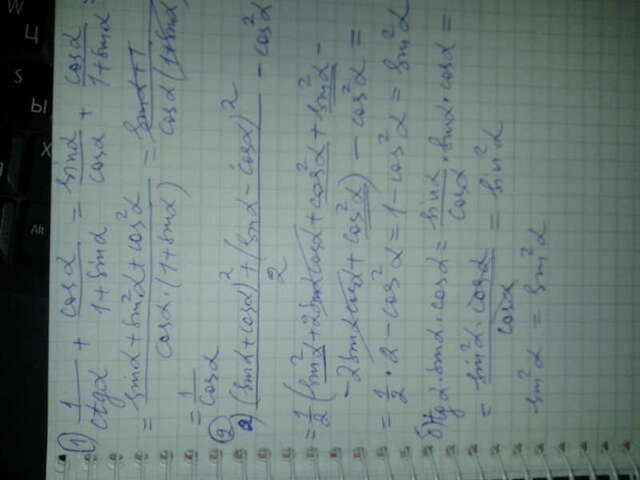 1) 1/ctgα + cosα/(1+sinα) = sinα/cosα + cosα/(1+sinα) =
= (sinα+sin²α+cos²α)/(cosα·(1+sinα)) = (sinα+1)/(cosα(1+sinα)) =
= 1/cosα
2)
а) ((sinα+cosα)²+(sinα-cosα)²)/2 - cos²α
= 1/2 (sin²α+2sinαcosα+cos²α+sin²α-
-2sinαcosα+cos²α) - cos²α =
= 1/2 · 2 - cos²α = 1 - cos²α = sin²α
б) tgα·sinα·cosα = sinα/cosα · sinα·cosα =
= sin²α·cosα/cosα = sin²α
sin²α = sin²α
W
Ц
S
Ы
X
Alt